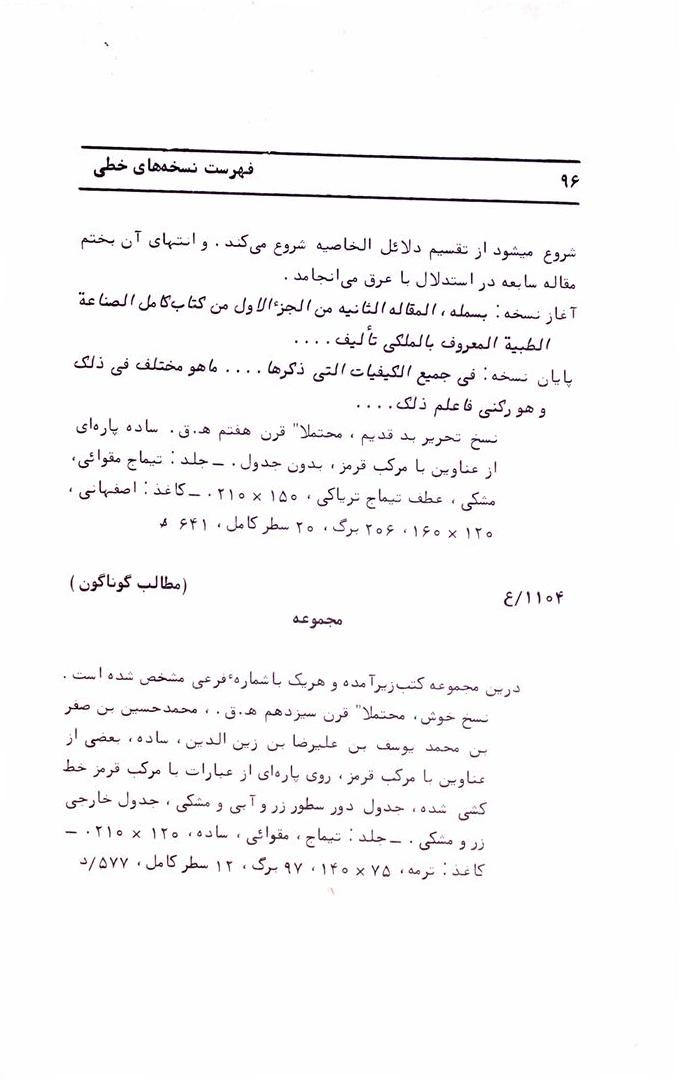 ۹۶ فهرست نسخه‌های خطی
شروع میشود از تقسیم دلائل الخاصیه شروع می‌کند . و انتهای آن بختم
مقاله سابعه در استدلال با عرق می‌انجامد .
آغاز نسخه : بسمله ، المقاله الثانیه من الجزء الاول من کتاب کامل الصناعة
الطبیة المعروف بالملکی تألیف . . . .
پایان نسخه : فی جمیع الکیفیات التی ذکرها . . . . ماهو مختلف فی ذلک
و هو رکنی فاعلم ذلک . . . .
نسخ تحریر بد قدیم ، محتملا" قرن هفتم ه‍.ق. ساده پاره‌ای
از عناوین با مرکب قرمز ، بدون جدول . ـ جلد : تیماج مقوائی ،
مشکی ، عطف تیماج تریاکی ، ۱۵۰ × ۲۱۰ . ـ کاغذ : اصفهانی ،
۱۲۰ × ۱۶۰ ، ۲۰۶ برگ ، ۲۰ سطر کامل ، ۶۴۱
۱۱۰۴/ع (مطالب گوناگون)
مجموعه
درین مجموعه کتب زیر آمده و هریک با شمارهٔ فرعی مشخص شده است .
نسخ خوش ، محتملا" قرن سیزدهم ه‍.ق . ، محمدحسین بن صفر
بن محمد یوسف بن علیرضا بن زین الدین ، ساده ، بعضی از
عناوین با مرکب قرمز ، روی پاره‌ای از عبارات با مرکب قرمز خط
کشی شده ، جدول دور سطور زر و آبی و مشکی ، جدول خارجی
زر و مشکی . ـ جلد : تیماج ، مقوائی ، ساده ، ۱۲۰ × ۲۱۰ . ـ
کاغذ : ترمه ، ۷۵ × ۱۴۰ ، ۹۷ برگ ، ۱۲ سطر کامل ، ۵۷۷/د